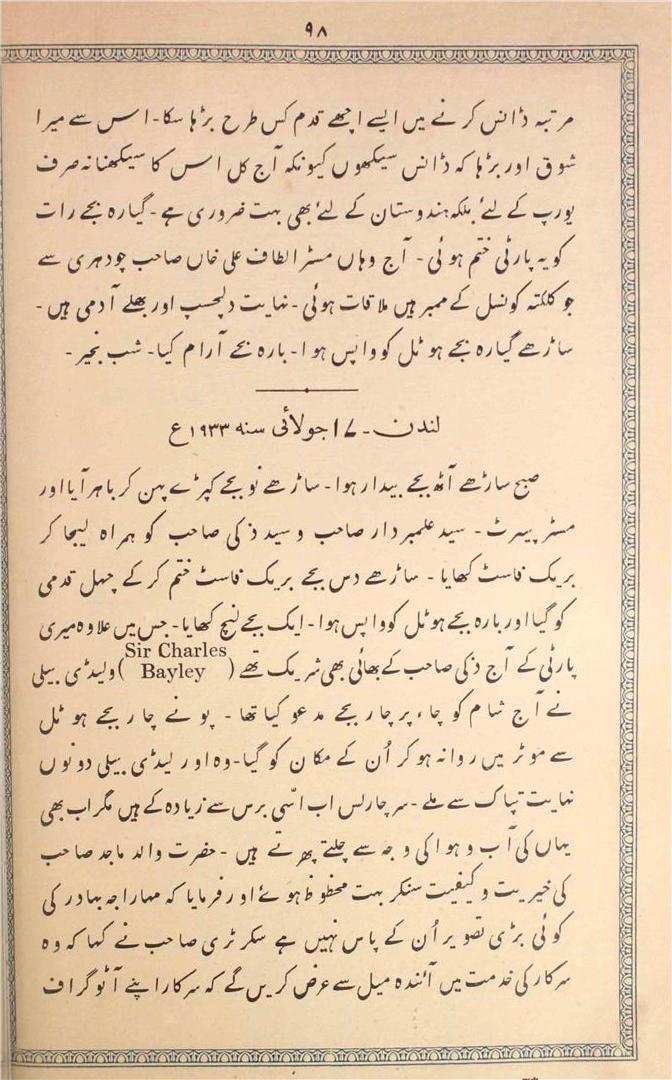 ۹۸
مرتبہ ڈانس کرنے میں ایسے اچھے قدم کس طرح بڑھا سکا۔ اس سے میرا
شوق اور بڑہا کہ ڈانس سیکھوں کیونکہ آج کل اس کا سیکھنا نہ صرف
یورپ کے لئے بلکہ ہندوستان کے لئے بھی بہت ضروری ہے۔ گیارہ بجے رات
کو یہ پارٹی ختم ہوئی۔ آج وہاں مسٹر الطاف علی خاں صاحب چودہری سے
جو کلکتہ کونسل کے ممبر ہیں ملاقات ہوئی۔ نہایت دلچسپ اور بھلے آدمی ہیں۔
ساڑھے گیارہ بجے ہوٹل کو واپس ہوا۔ بارہ بجے آرام کیا۔ شب بخیر۔
لندن۔ ۱۷ جولائی سنہ ۱۹۳۳ع
صبح ساڑھے آٹھ بجے بیدار ہوا۔ ساڑھے نو بجے کپڑے پہن کر باہر آیا اور
مسٹر پیرٹ۔ سید علمبردار صاحب و سید ذکی صاحب کو ہمراہ لیجا کر
بریک فاسٹ کھایا۔ ساڑھے دس بجے بریک فاسٹ ختم کر کے چہل قدمی
کو گیا اور بارہ بجے ہوٹل کو واپس ہوا۔ ایک بجے لنچ کھایا۔ جس میں علاوہ میری
پارٹی کے آج ذکی صاحب کے بھائی بھی شریک تھے (Sir Charles Bayley) ولیڈی بیلی
نے آج شام کو چاء پر چار بجے مدعو کیا تھا۔ پونے چار بجے ہوٹل
سے موٹر میں روانہ ہو کر اُن کے مکان کو گیا۔ وہ اور لیڈی بیلی دونوں
نہایت تپاک سے ملے۔ سر چارلس اب اسّی برس سے زیادہ کے ہیں مگر اب بھی
یہاں کی آب و ہوا کی وجہ سے چلتے پھرتے ہیں۔ حضرت والد ماجد صاحب
کی خیریت و کیفیت سنکر بہت محظوظ ہوئے اور فرمایا کہ مہاراجہ بہادر کی
کوئی بڑی تصویر اُن کے پاس نہیں ہے سکرٹری صاحب نے کہا کہ وہ
سرکار کی خدمت میں آئندہ میل سے عرض کریں گے کہ سرکار اپنے آٹوگراف